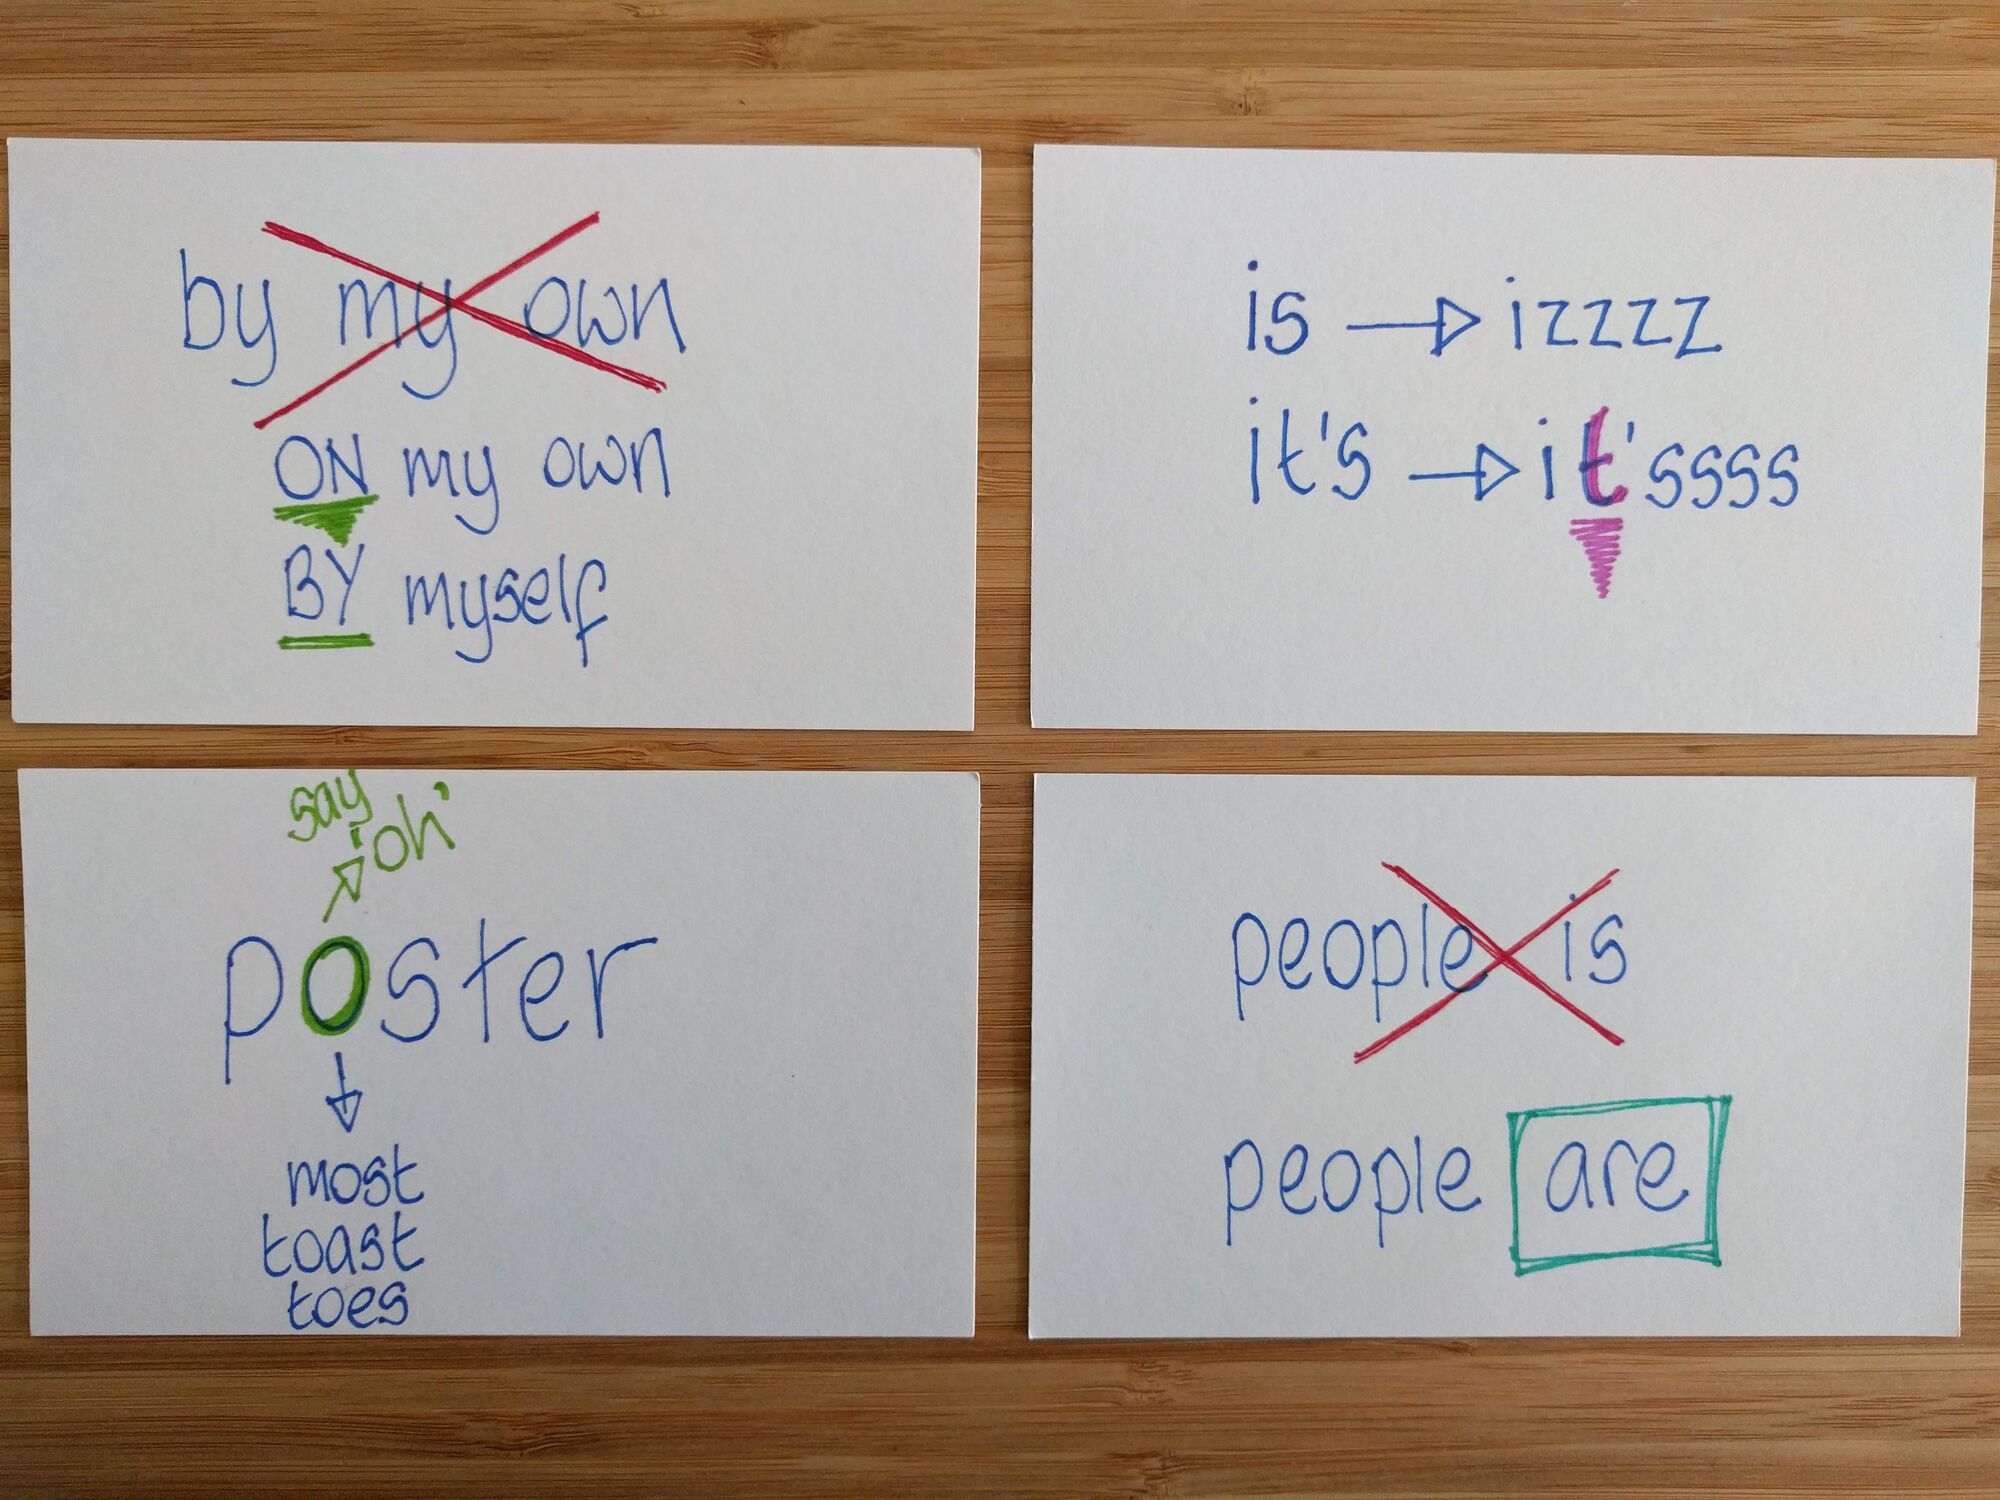 by my own
ON my own
BY myself
is → izzzz
it's → it'ssss
say
'oh'
poster
most
toast
toes
people is
people are